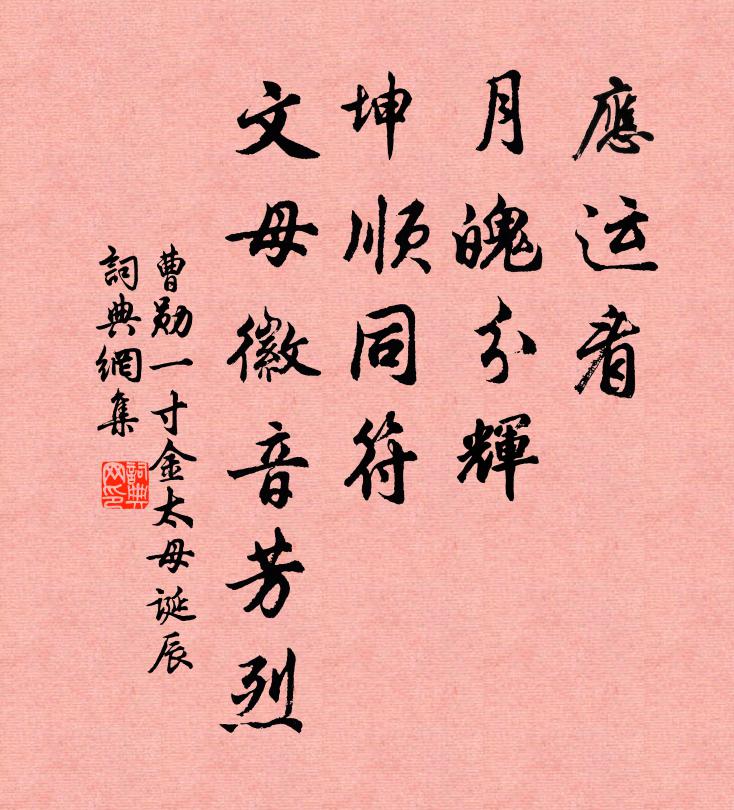 應运看
月魄分輝
坤順同符
文母徽音芳烈
曹勛一寸金太母誕辰
詞典網集
詞典网印